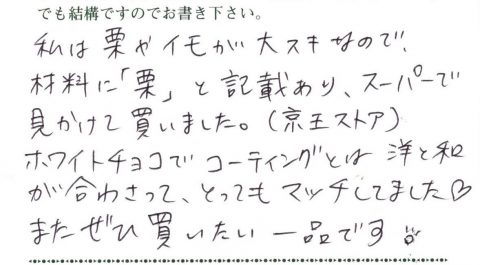 でも結構ですのでお書き下さい。
私は栗やイモが大スキなので、
材料に「栗」と記載あり、スーパーで
見かけて買いました。(京王ストア)
ホワイトチョコでコーティングとは洋と和
が合わさって、とってもマッチしてました♡
またぜひ買いたい一品です